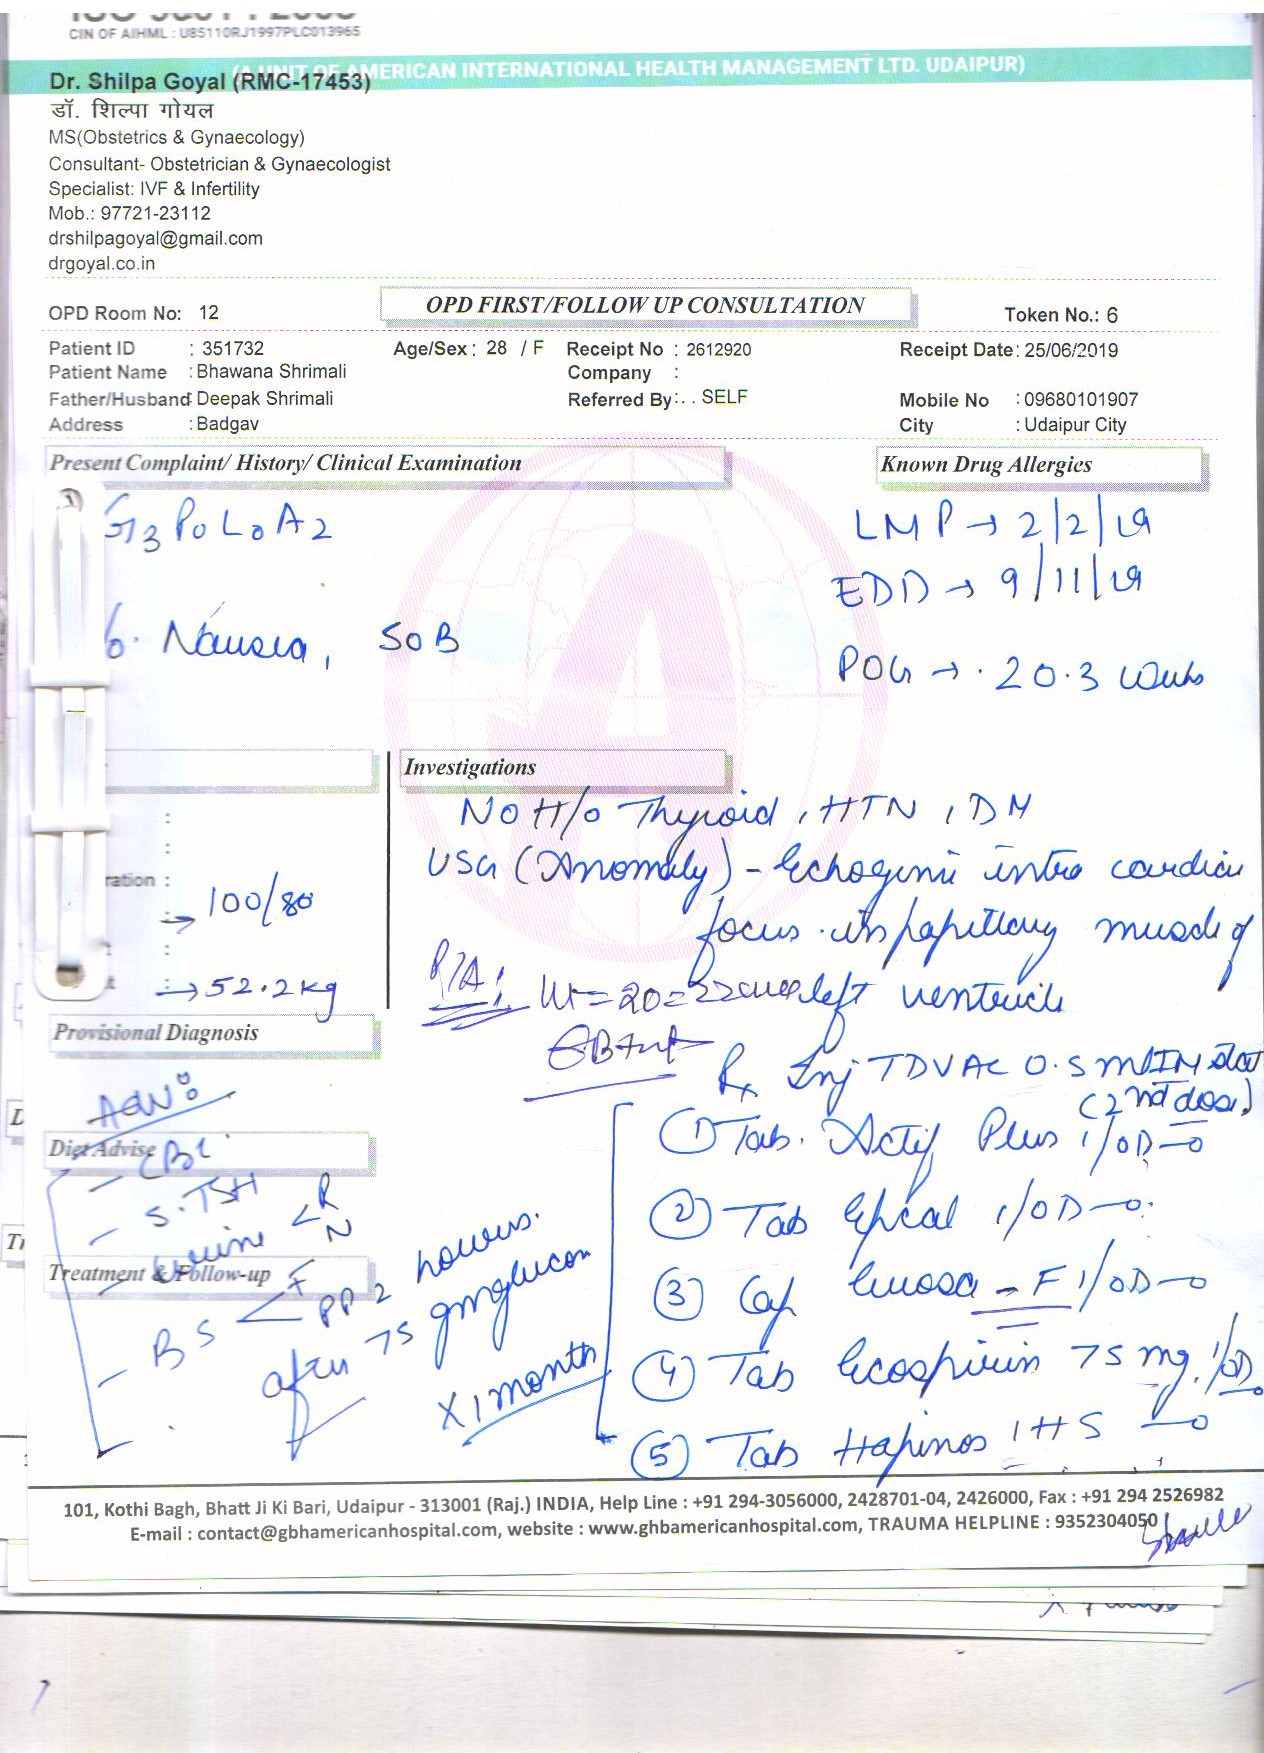 CIN OF AIHML : U85110RJ1997PLC013965
(A UNIT OF AMERICAN INTERNATIONAL HEALTH MANAGEMENT LTD. UDAIPUR)
Dr. Shilpa Goyal (RMC-17453)
डॉ. शिल्पा गोयल
MS(Obstetrics & Gynaecology)
Consultant- Obstetrician & Gynaecologist
Specialist: IVF & Infertility
Mob.: 97721-23112
drshilpagoyal@gmail.com
drgoyal.co.in
OPD Room No: 12 OPD FIRST/FOLLOW UP CONSULTATION Token No.: 6
Patient ID : 351732 Age/Sex : 28 / F Receipt No : 2612920 Receipt Date: 25/06/2019
Patient Name : Bhawana Shrimali Company :
Father/Husband: Deepak Shrimali Referred By:. . SELF Mobile No : 09680101907
Address : Badgav City : Udaipur City
Present Complaint/ History/ Clinical Examination Known Drug Allergies
G3 P0 L0 A2 LMP → 2/2/19
EDD → 9/11/19
Nausea, SOB
POG → 20.3 weeks
Investigations
No H/o Thyroid, HTN, DM
USG (Anomaly) - Echogenic intra cardiac
ration :
→ 100/80
focus in papillary muscle of
left ventricle
P/A: Ut = 20-22 week
→ 52.2 kg
Provisional Diagnosis
Rx Inj TDVAC 0.5 ml IM stat
(2nd dose)
Adv:
Diet Advise
- CBC
- S.TSH
- urine < R N
Treatment & Follow-up
- BS < F PP 2 hours.
after 75 gm glucon
X 1 month
1) Tab. Actif Plus 1/OD
2) Tab Epical 1/OD
3) Cap - F 1/OD
4) Tab Ecospirin 75 mg. 1/OD
5) Tab Hapinos 1 HS
101, Kothi Bagh, Bhatt Ji Ki Bari, Udaipur - 313001 (Raj.) INDIA, Help Line : +91 294-3056000, 2428701-04, 2426000, Fax : +91 294 2526982
E-mail : contact@gbhamericanhospital.com, website : www.ghbamericanhospital.com, TRAUMA HELPLINE : 9352304050